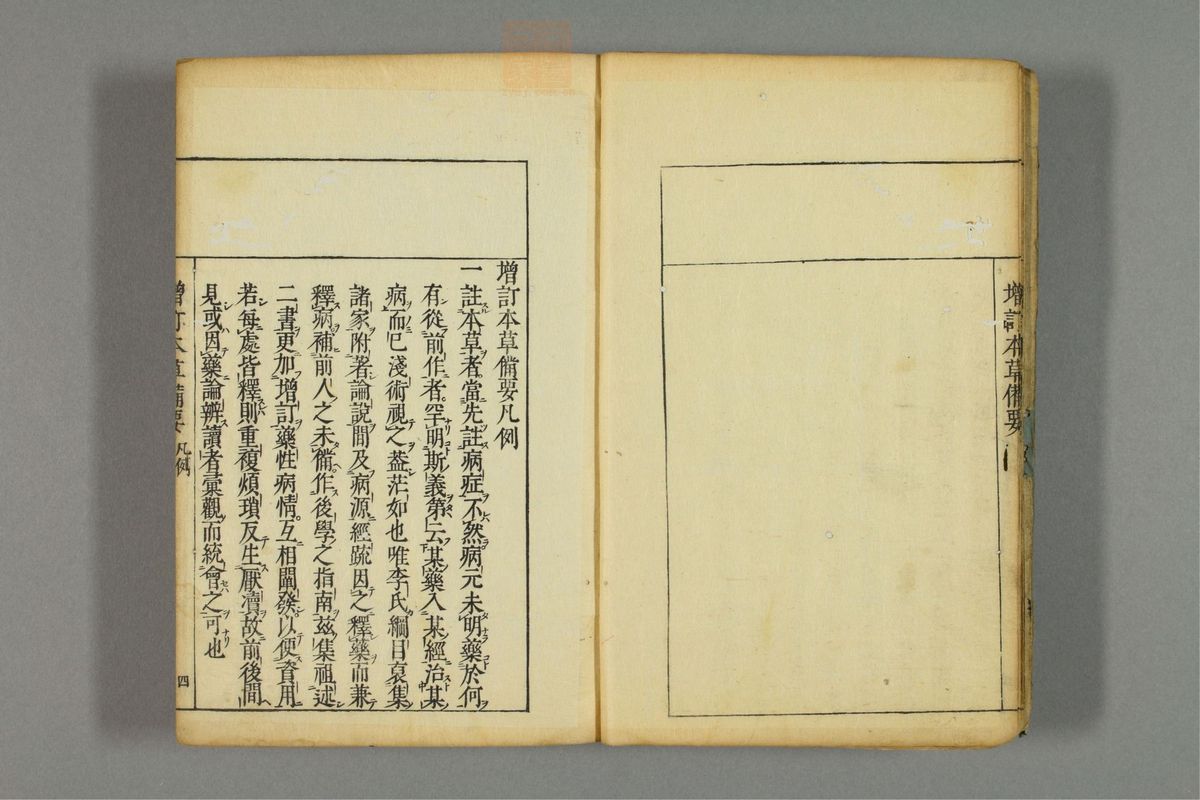 增訂本草備要
增訂本草備要凡例
一註本草者當先註病症不然病元未明藥於何
有從前作者罕明斯義第云某藥入某經治某
病而已淺術視之葢茫如也唯李氏綱目裒集
諸家附著論說間及病源經疏因之釋藥而兼
釋病補前人之未備作後學之指南茲集祖述
二書更加增訂藥性病情互相闡發以便資用
若每處皆釋則重複煩瑣反生厭瀆故前後間
見或因藥論辨讀者彙觀而統會之可也
增訂本草備要 凡例 四